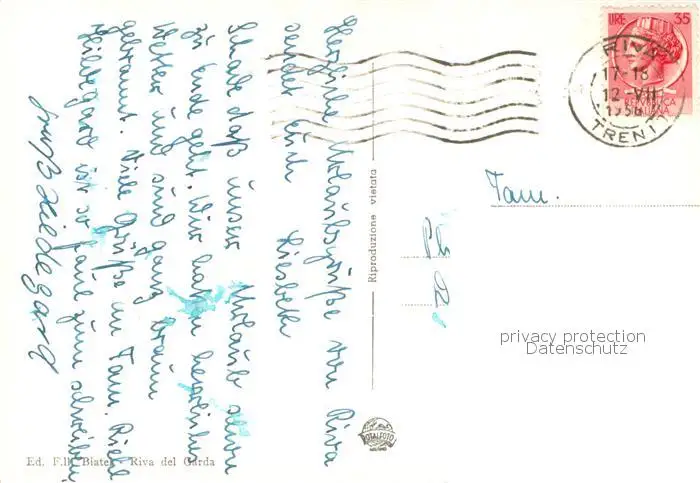 Herzliche Urlaubsgrüße von Riva
sendet euch Liesbeth
Schade daß unser Urlaub schon
zu Ende geht. Wir haben herrliches
Wetter und sind ganz braun
gebrannt. Viele Grüße an Fam.
Hildegard ist zu faul zum schreiben.
Gruß Hildegard
Ed. F.lli Biatel - Riva del Garda
Riproduzione vietata
LIRE 35
REPVBBLICA
ITALIANA
RIVA
17-18
12 VII
1956
TRENTO
Fam.
privacy protection
Datenschutz
TOTALFOTO
MILANO